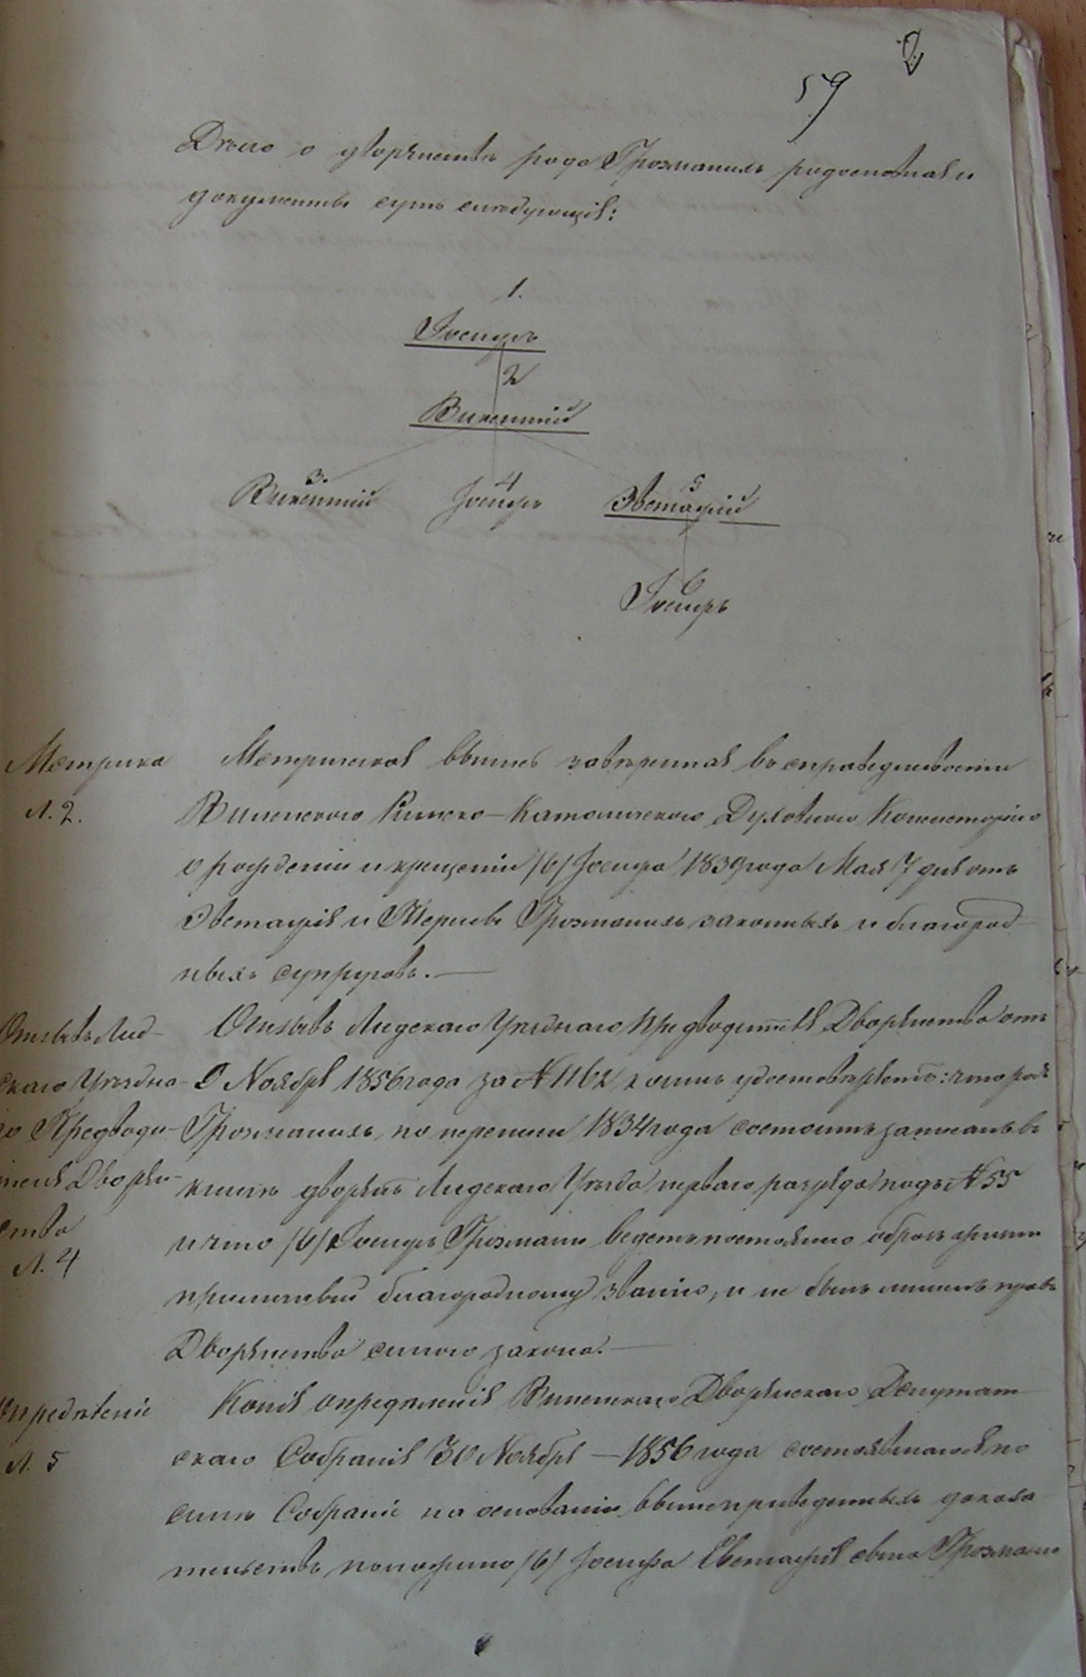 2
59
Дѣло о дворянствѣ рода Грозмановъ родословная и
документы суть слѣдующія:
1.
Іосифъ
2
Викентій
3. 4 5
Викентій Іосифъ Эвстафій
6
Іосифъ
Метрика
Л. 2.
Метрическая выпись завѣренная въ справедливости
Виленскою Римско-Католическою Духовною Консисторіею
о рожденіи и крещеніи /6/ Іосифа 1839 года Мая 7 дня отъ
Эвстафія и Терезы Грозмановъ законныхъ и благород-
ныхъ супруговъ.—
Отзывъ Лид-
скаго Уѣздна-
го Предводи-
теля Дворян-
ства
Л. 4
Отзывъ Лидскаго Уѣзднаго Предводителя Дворянства отъ
9 Ноября 1856 года за № 1162 коимъ удостовѣряетъ: что родъ
Грозмановъ, по переписи 1834 года состоитъ записанъ въ
книгѣ дворянъ Лидскаго Уѣзда перваго разряда подъ № 55
и что /6/ Іосифъ Грозманъ ведетъ постоянно образъ жизни
приличный благородному званію, и не былъ лишенъ правъ
Дворянства силою закона.—
Опредѣленіе
Л. 5
Копія опредѣленія Виленскаго Дворянскаго Депутат-
скаго Собранія 30 Ноября — 1856 года состоявшагося по
коимъ Собраніе на основаніи вышеприведенныхъ доказа
тельствъ положило /6/ Іосифа Евстафія сына Грозмана